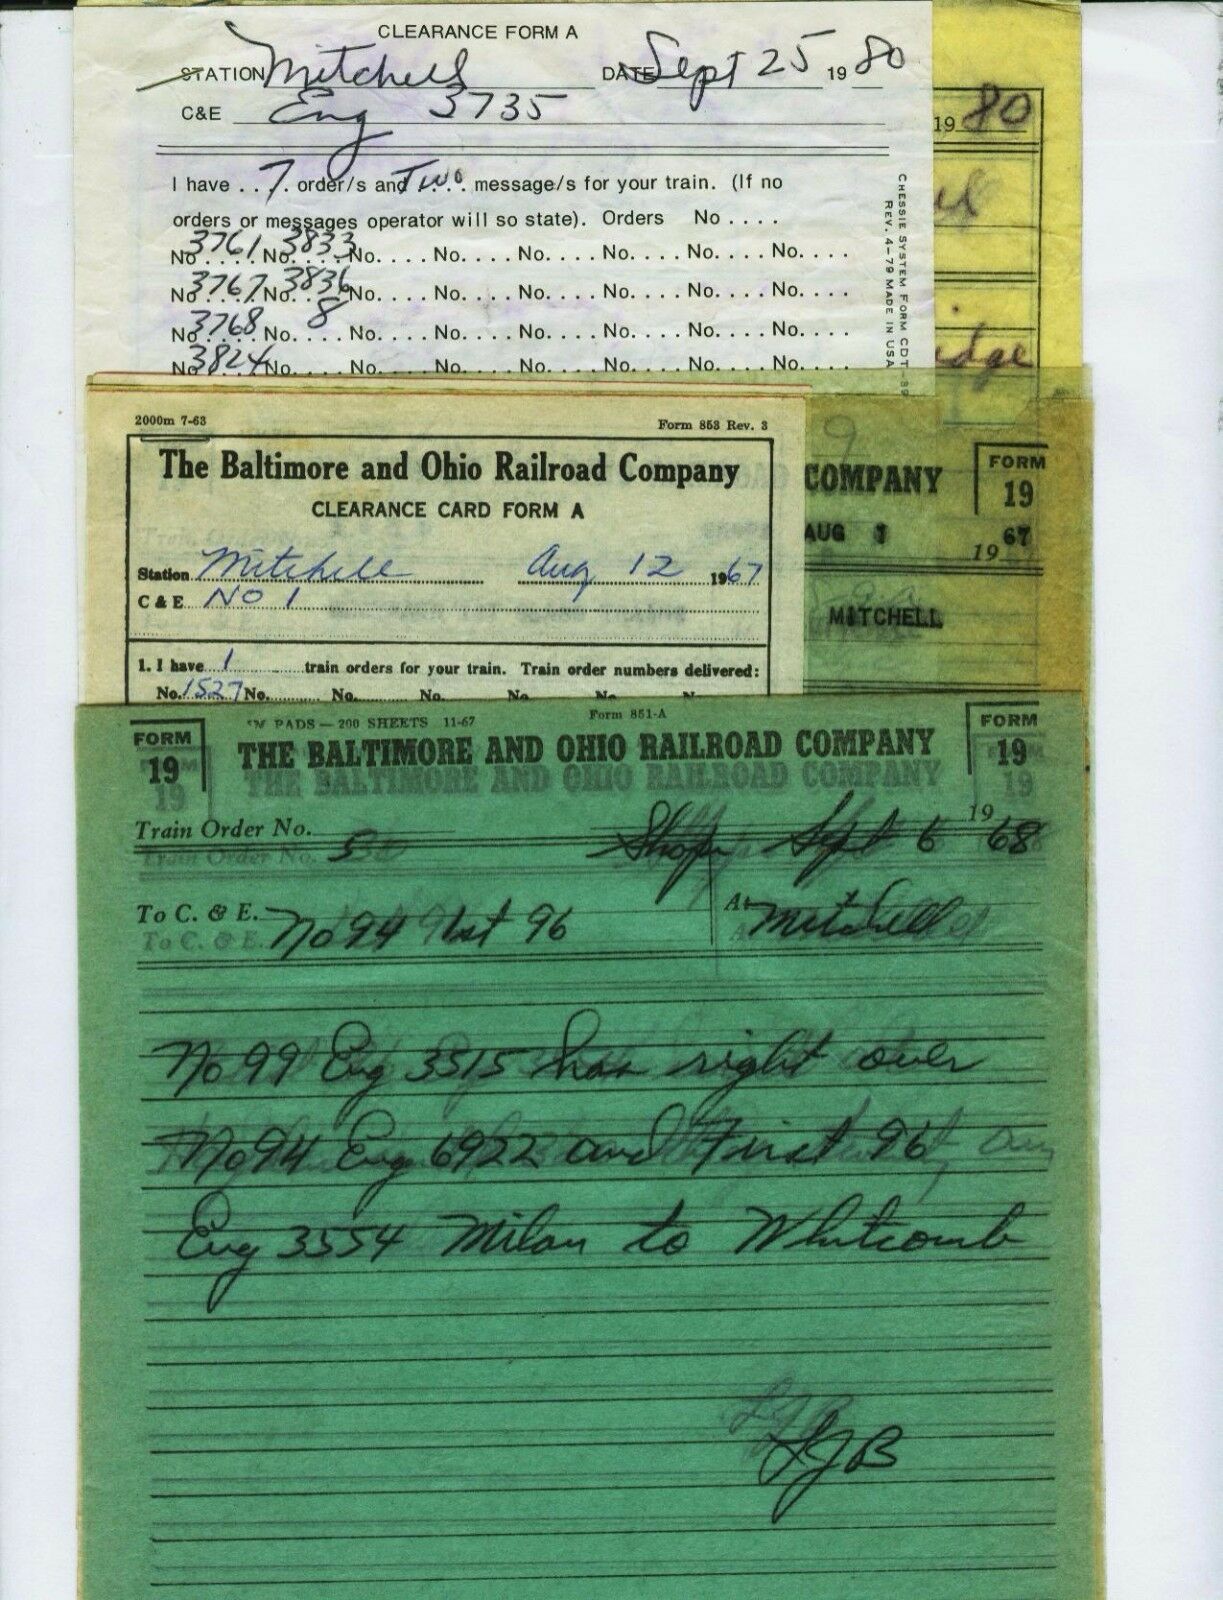 CLEARANCE FORM A
STATION Mitchell DATE Sept 25 19 80
C&E Eng 3735
I have . . 7 . order/s and Two . . . message/s for your train. (If no
orders or messages operator will so state). Orders No . . . .
No 3761 No. 3833 No. . . . No. . . . No. . . . No. . . . No. . . . No. . . .
No 3767 No. 3836 No. . . . No. . . . No. . . . No. . . . No. . . . No. . . .
No 3768 No. 8 No. . . . No. . . . No. . . . No. . . . No. . . . No. . . .
No 3824 No. . . . No. . . . No. . . . No. . . . No. . . . No. . . . No. . . .
CHESSIE SYSTEM FORM CDT-89
REV. 4-79 MADE IN USA
19 80
idge
2000m 7-63 Form 853 Rev. 3
The Baltimore and Ohio Railroad Company
CLEARANCE CARD FORM A
Station Mitchell Aug 12 1967
C & E No 1
1. I have 1 train orders for your train. Train order numbers delivered:
No. 1527 No. No. No. No. No. N
COMPANY
FORM
19
AUG 1 19 67
MITCHELL
PADS — 200 SHEETS 11-67 Form 851-A
FORM
19
THE BALTIMORE AND OHIO RAILROAD COMPANY
FORM
19
Train Order No. 5 Shops Sept 6 19 68
To C. & E. No 94 1st 96 At Mitchell
No 99 Eng 3515 has right over
No 94 Eng 6922 and First 96
Eng 3554 Milan to Whitcomb
LJB